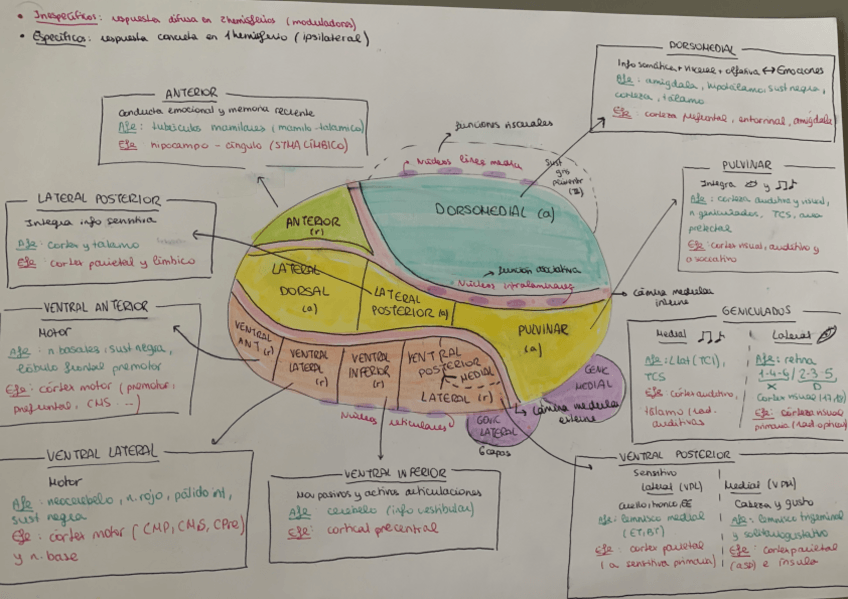 • Inespecíficos: respuesta difusa en 2 hemisferios (moduladores)
• Específicos: respuesta concreta en 1 hemisferio (ipsilateral)
ANTERIOR
Conducta emocional y memoria reciente
Afe: tubérculos mamilares (mamilo-talámico)
Efe: hipocampo - cíngulo (STMA LÍMBICO)
DORSOMEDIAL
Info somática + visceral + olfativa ↔ Emociones
Afe: amígdala, hipotálamo, sust negra,
corteza, tálamo
Efe: corteza prefrontal, entorrinal, amígdala
LATERAL POSTERIOR
Integra info sensitiva
Afe: cortex y tálamo
Efe: cortex parietal y límbico
PULVINAR
Integra y
Afe: corteza auditiva y visual,
n. geniculados, TCS, area
pretectal
Efe: cortex visual, auditivo y
asociativo
VENTRAL ANTERIOR
Motor
Afe: n. basales, sust negra,
lóbulo frontal premotor
Efe: córtex motor (premotor,
prefrontal, CMS ...)
GENICULADOS
Medial
Afe: L lat (TCI),
TCS
Efe: córtex auditivo,
Lateral
Afe: retina
1-4-6 / 2-3-5,
X D
Cortex visual
Efe: corteza visual
primaria (rad. ópticas)
VENTRAL LATERAL
Motor
Afe: neocerebelo, n. rojo, pálido int,
sust negra
Efe: córtex motor (CMP, CMS, CPre)
y n. base
VENTRAL INFERIOR
Mov pasivos y activos articulaciones
Afe: cerebelo (info vestibular)
Efe: cortical precentral
VENTRAL POSTERIOR
Sensitivo
Lateral (VPL)
Cuello, tronco, EE
Afe: lemnisco medial
(ET, BT)
Efe: cortex parietal
(a sensitiva primaria)
Medial (VPM)
Cabeza y gusto
Afe: lemnisco trigeminal
y solitariogustativo
Efe: cortex parietal
(asp) e ínsula
funciones viscerales
Núcleos línea media
Sust
gris
ANTERIOR (r)
DORSOMEDIAL (a)
función asociativa
Núcleos intralaminares
Lámina medular
interna
LATERAL
DORSAL
(a)
LATERAL
POSTERIOR (a)
PULVINAR
(a)
VENTRAL
ANT (r)
VENTRAL
LATERAL
(r)
VENTRAL
INFERIOR
(r)
VENTRAL
POSTERIOR
MEDIAL
LATERAL (r)
GENIC
MEDIAL
GENIC
LATERAL
6 capas
Lámina medular
externa
Núcleos reticulares